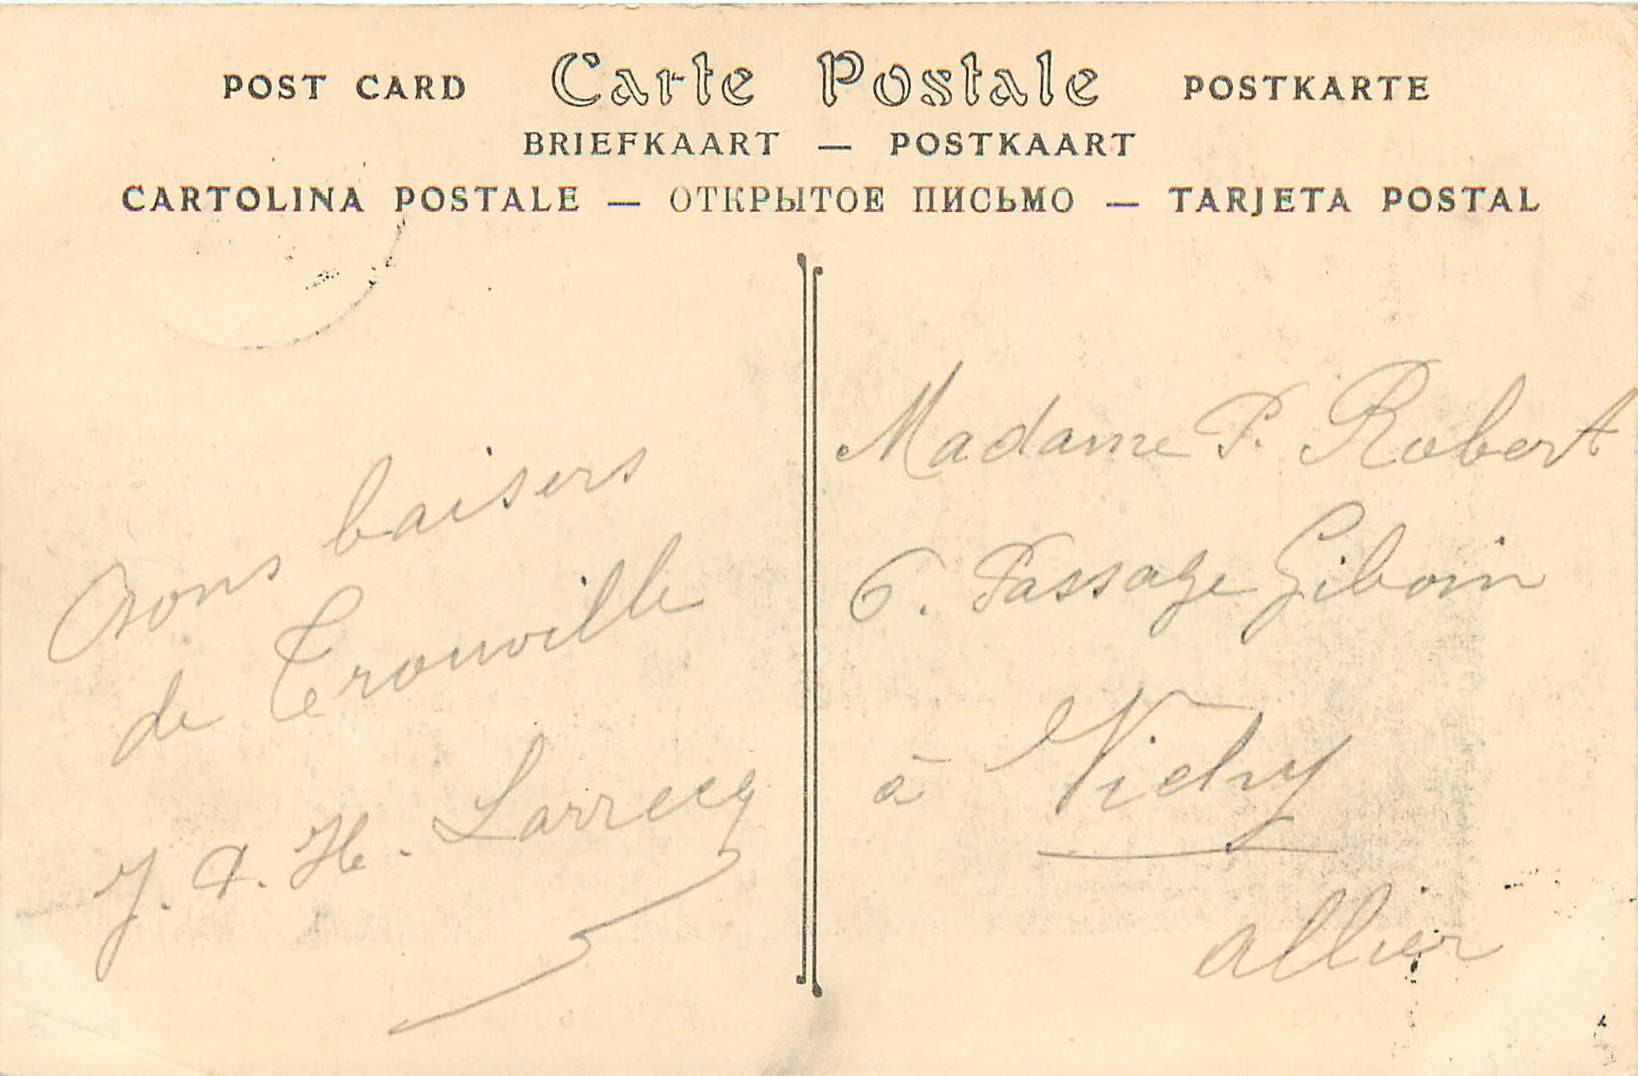 POST CARD Carte Postale POSTKARTE
BRIEFKAART — POSTKAART
CARTOLINA POSTALE — ОТКРЫТОЕ ПИСЬМО — TARJETA POSTAL
Bons baisers
de Trouville
J. & H. Larrecq
Madame P. Robert
6. Passage Giboin
à Vichy
Allier